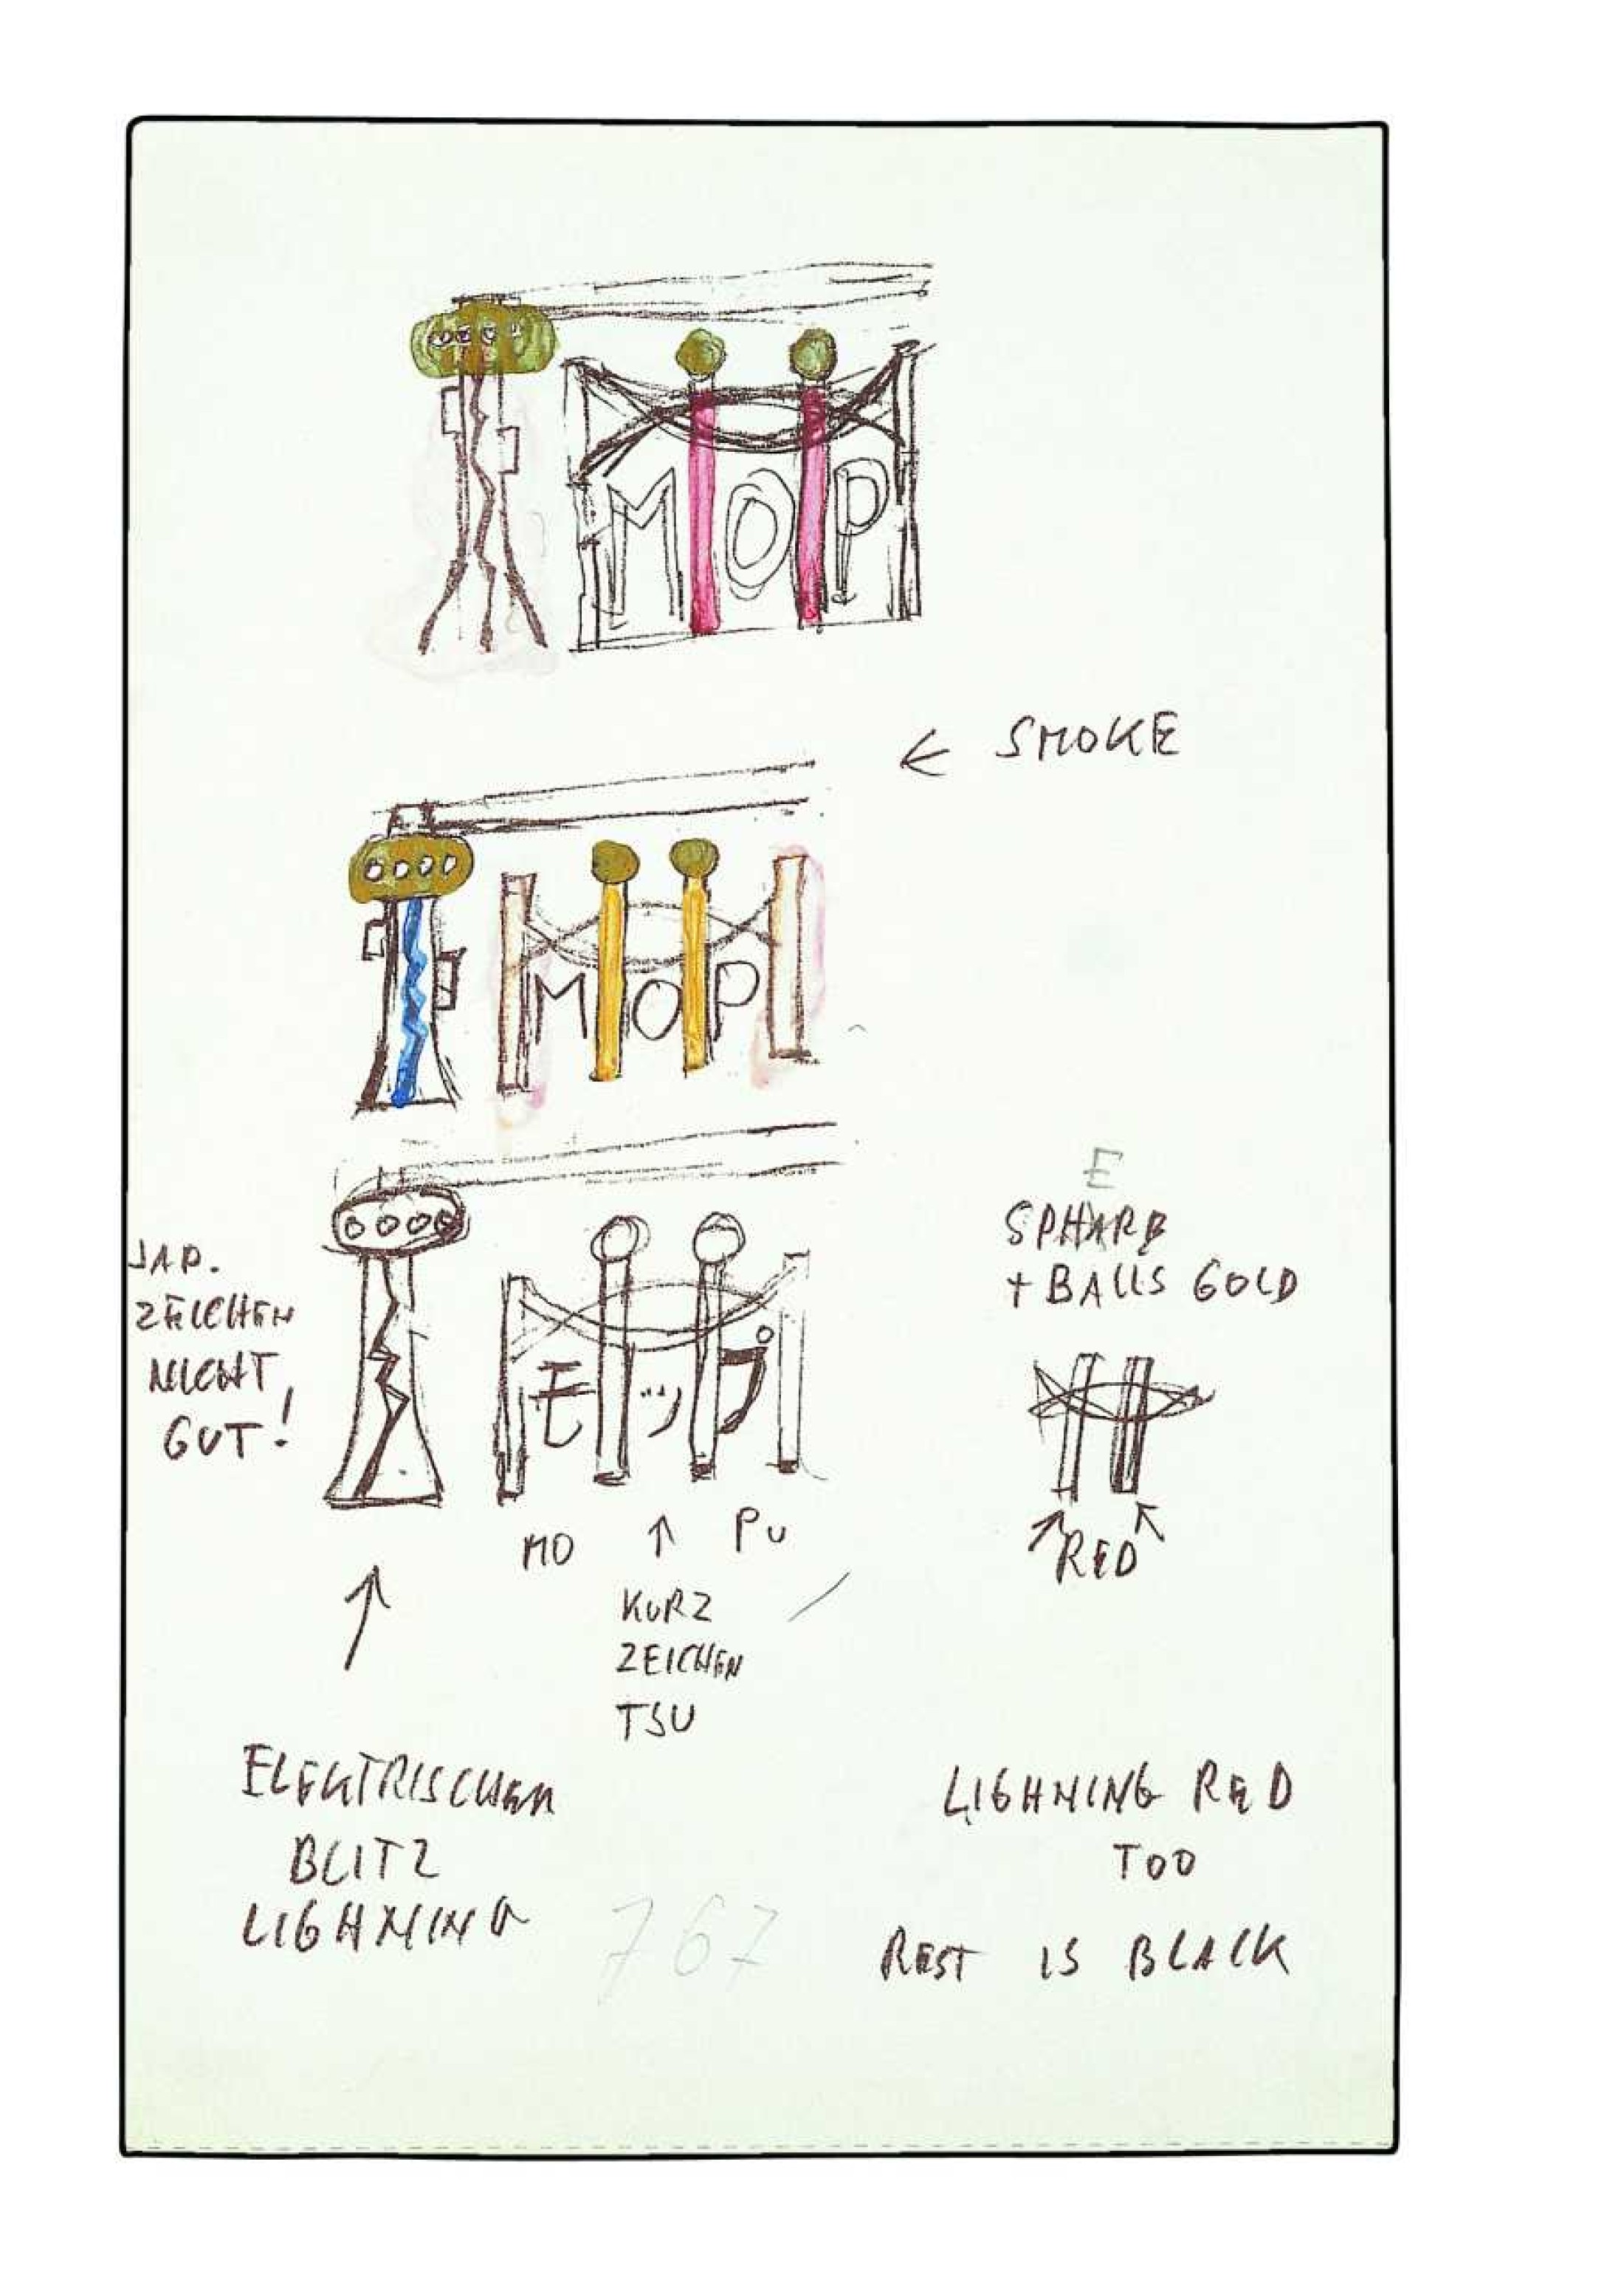 MOP
← SMOKE
MOP
JAP.
ZEICHEN
NICHT
GUT!
モップ
MO ↑ PU
KURZ
ZEICHEN
TSU
E
SPHARE
+ BALLS GOLD
RED
ELEKTRISCHEN
BLITZ
LIGHNING
767
LIGHNING RED
TOO
REST IS BLACK